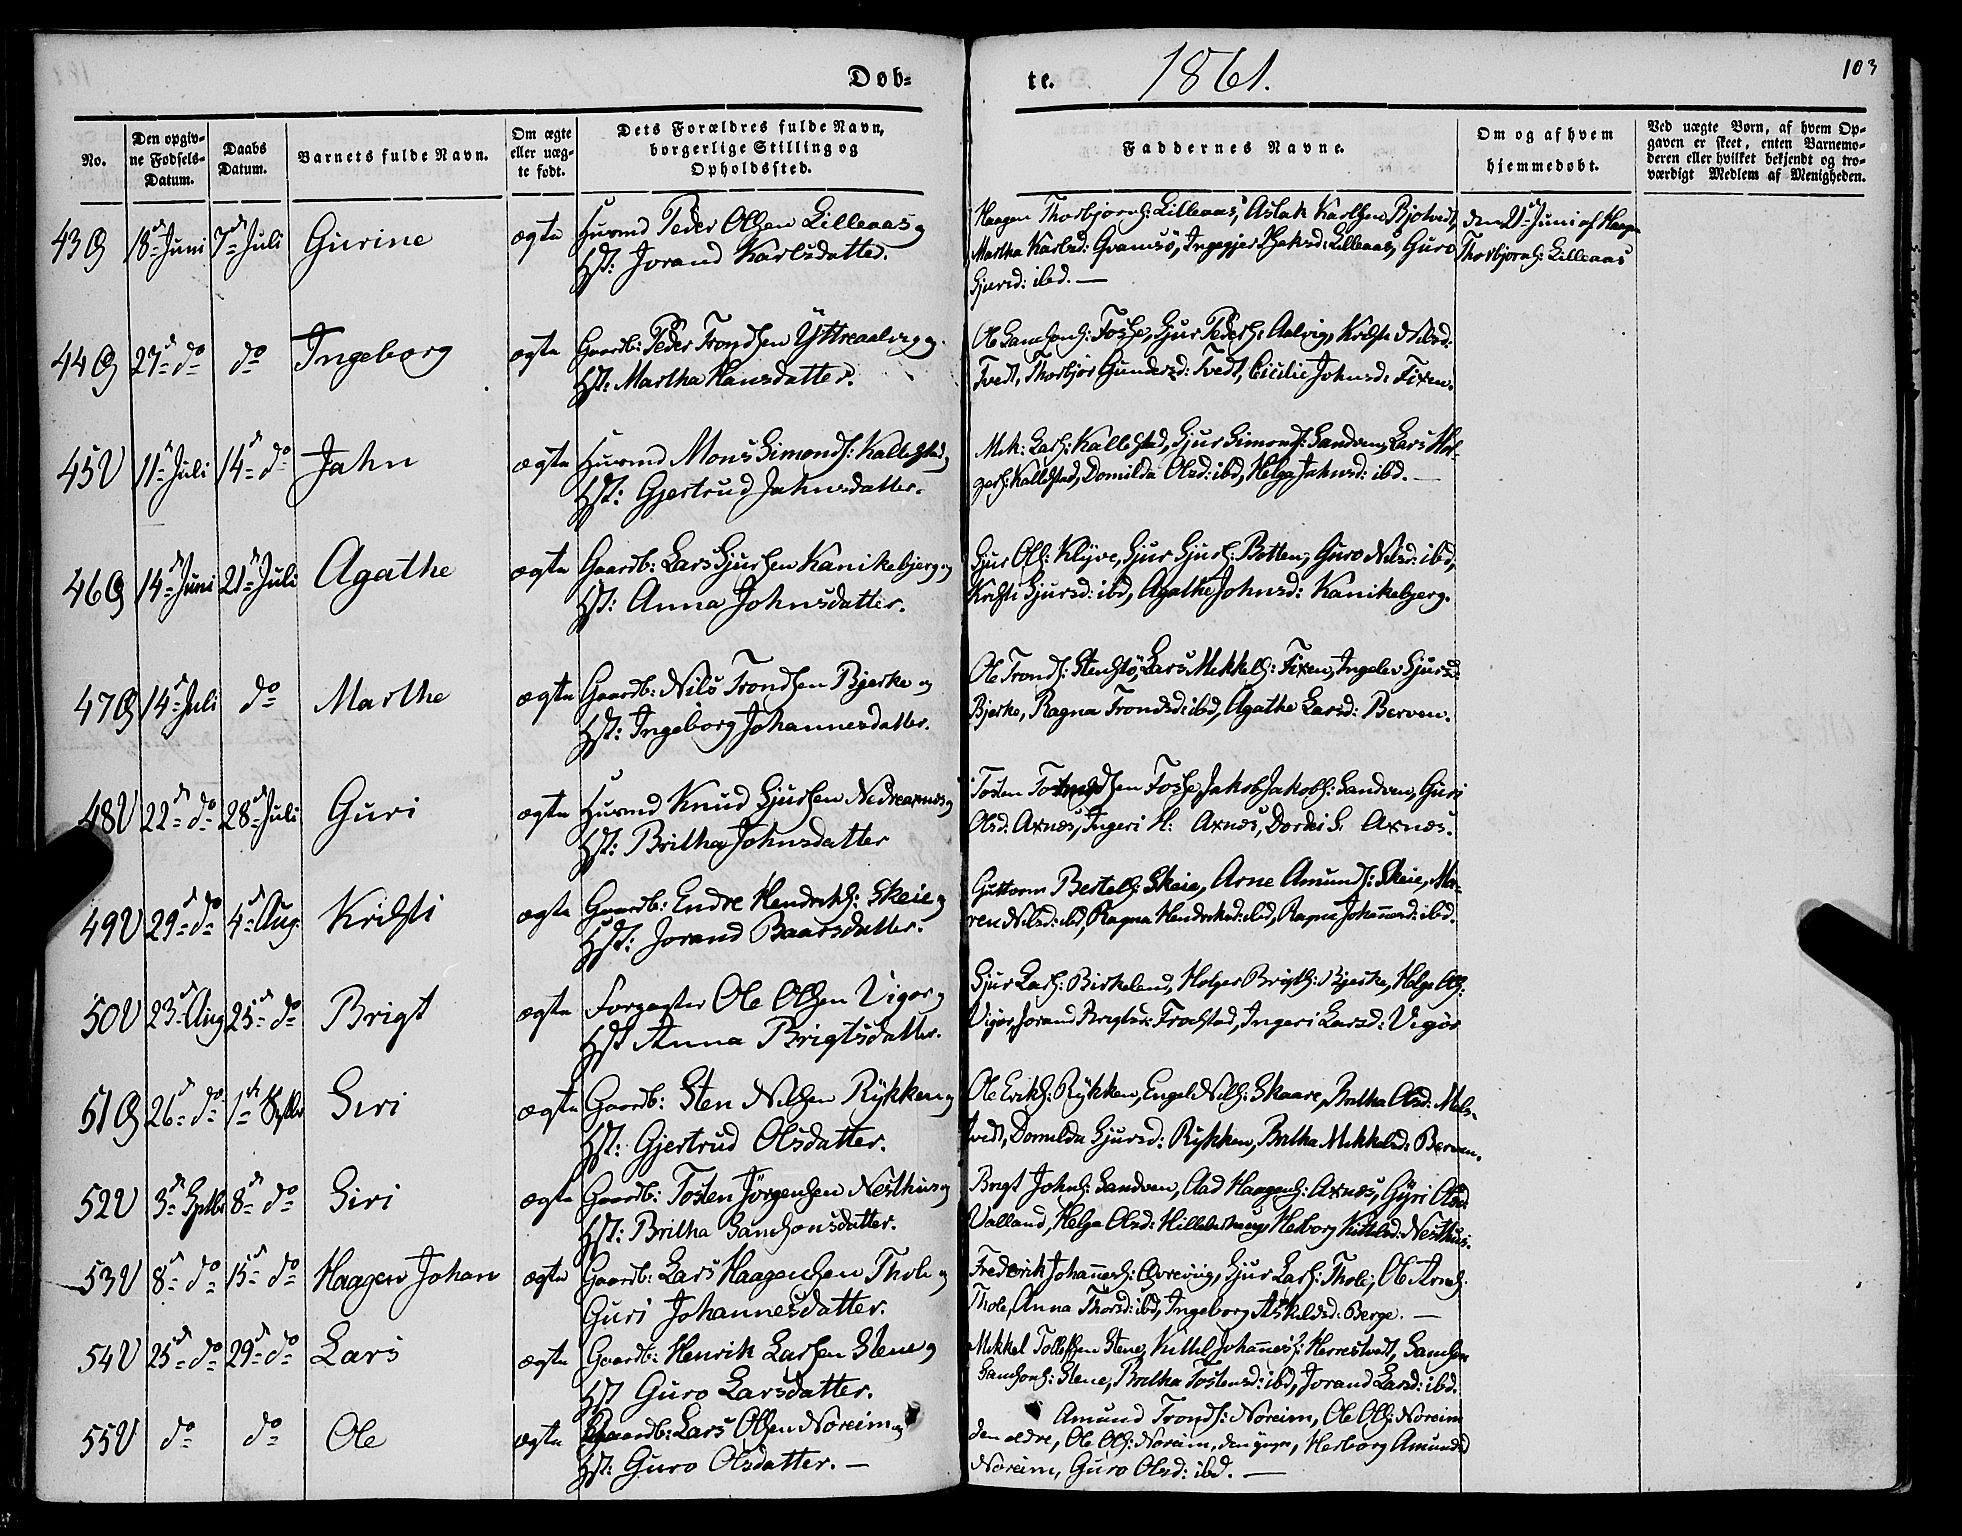 Døb-
te.
1861.
103
No.
Den opgiv-
ne Fødsels-
Datum.
Daabs
Datum.
Barnets fulde Navn.
Om ægte
eller uæg-
te født.
Dets Forældres fulde Navn,
borgerlige Stilling og
Opholdssted.
Faddernes Navne.
Om og af hvem
hjemmedøbt.
Ved uægte Børn, af hvem Op-
gaven er skeet, enten Barnemo-
deren eller hvilket bekjendt og tro-
værdigt Medlem af Menigheden.
43 18de Juni 7de Juli Gurine ægte Huusmd Peder Olsen Lilleaas og
Hst: Jorand Karlsdatter.
Haagen Thorbjørns: Lilleaas, Aslak Karlsen Bjotvedt,
Martha Karlsd: Gramsø, Ingegjer Lilleaas, Guro
Sjursd: ibd. —
den 21de Juni af Haagen
Thorbjørns: Lilleaas
44 27de do do Ingeborg ægte Gaardb: Peder Trondsen Yttreaalvig og
Hst: Martha Hansdatter.
Ole Samsons: Fosse, Sjur Peders: Aalvig, Nilsd:
Tvedt, Thorbjør Gundersd: Tvedt, Cicilie Johnsd: Fixen.
45 V 11te Juli 14de do Jahn ægte Huusmd Mons Simonds: Kallestad og
Hst: Gjertrud Jahnsdatter.
Mik: Lars: Kallestad, Sjur Simonds: Sandven, Lars Hol-
gers: Kallestad, Domilda Olsd: ibd, Helga Jahnsd: ibd. —
46 14de Juni 21de Juli Agathe ægte Gaardb: Lars Sjursen Kanikebjerg og
Hst: Anna Johnsdatter.
Sjur Ols: Klyve, Sjur Sjurs: Botten, Guro Nilsd: ibd,
Kristi Sjursd: ibd, Agathe Johnsd: Kanikebjerg.
47 14de Juli do Marthe ægte Gaardb: Nils Trondsen Bjerke og
Hst: Ingeborg Johannesdatter.
Ole Tronds: Stenstø, Lars Mikkels: Fixen, Ingelev Sjursd:
Bjerke, Ragna Trondsd: ibd, Agathe Larsd: Berven.
48 V 22de do 28de Juli Guri ægte Huusmd Knud Sjursen Nedreaxnes og
Hst: Britha Johnsdatter
Tosten Fosse, Jakob Jakobs: Sandven, Guri
Olsd: Axnes, Ingeri H: Axnes, Dordei S. Axnes.
49 V 29de do 4de Aug. Kristi ægte Gaardb: Endre Hendriks: Skeie og
Hst: Jorand Baarsdatter.
Guttorm Bertels: Skeie, Arne Amunds: Skeie, Ma-
ren Nilsd: ibd, Ragna Hendriksd: ibd, Ragna Johannesd: ibd.
50 V 23de Aug 25de do Brigt ægte Forpagter Ole Olsen Vigør og
Hst Anna Brigtsdatter.
Sjur Lars: Birkeland, Holger Brigts: Bjerke, Helge Ols:
Vigør, Jorand Brigtsd: Frøstad, Ingeri Larsd: Vigør
51 26de do 1ste Septbr Siri ægte Gaardb: Sten Nilsen Rykken og
Hst: Gjertrud Olsdatter.
Ole Eriks: Rykken, Engel Nils: Skaare, Britha Olsd: Mels-
tvedt, Domilda Sjursd: Rykken, Britha Mikkelsd: Berven.
52 V 3de Septbr 8de do Siri ægte Gaardb: Tosten Jørgensen Nesthus og
Hst: Britha Samsonsdatter.
Brigt Johns: Sandven, Aad Haagens: Axnes, Gyri Olsd:
Valland, Helga Olsd: Herborg Kittilsd: Nesthus.
53 V 8de do 15de do Haagen Johan ægte Gaardb: Lars Haagensen Thole og
Guri Johannesdatter.
Frederik Johanness: Øvrevig, Sjur Lars: Thole, Ole Arnes:
Thole, Anna Thorsd: ibd, Ingeborg Askildsd: Berge. —
54 V 25de do 29de do Lars ægte Gaardb: Henrik Larsen Stene og
Hst Guro Larsdatter.
Mikkel Tollefsen Stene, Kittil Johanness: Herrestvedt, Samson
Samsons: Stene, Britha Tostensd: ibd, Jorand Larsd: ibd.
55 V do do Ole ægte Gaardb: Lars Olsen Noreim og
Hst: Guro Olsdatter. —
Amund Tronds: Noreim, Ole Ols: Noreim
den eldre, Ole Ols: Noreim, den yngre, Herborg Amundsd
Noreim, Guro Olsd: ibd. —